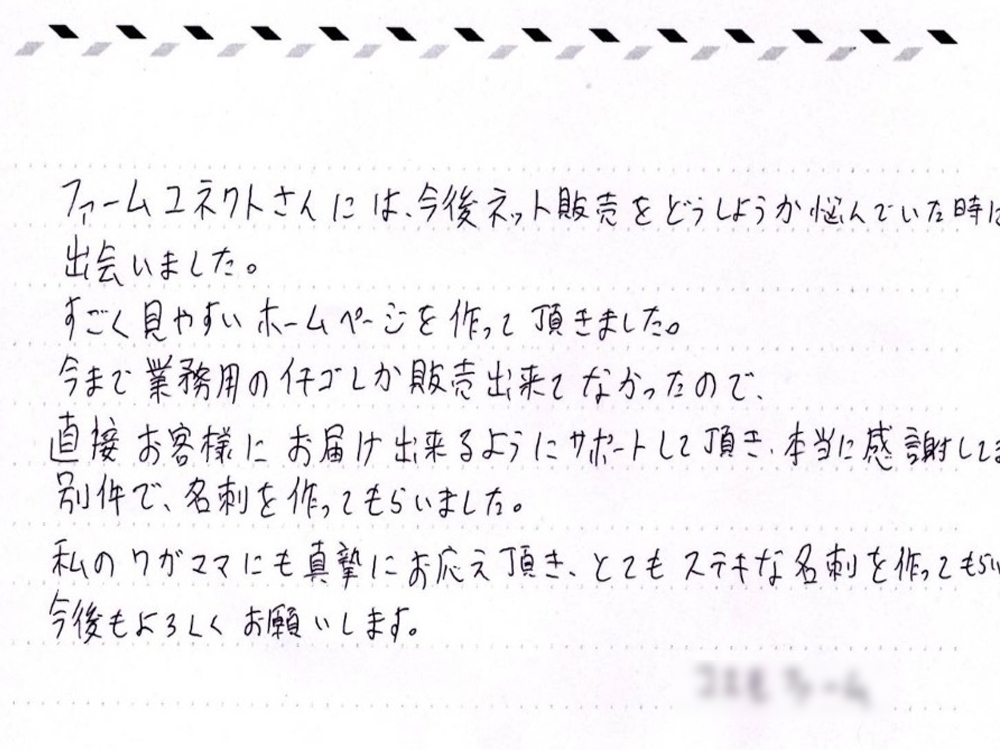 ファームコネクトさんには、今後ネット販売をどうしようか悩んでいた時に
出会いました。
すごく見やすいホームページを作って頂きました。
今まで業務用のイチゴしか販売出来てなかったので、
直接お客様にお届け出来るようにサポートして頂き、本当に感謝してま
別件で、名刺を作ってもらいました。
私のワガママにも真摯にお応え頂き、とてもステキな名刺を作ってもらい
今後もよろしくお願いします。